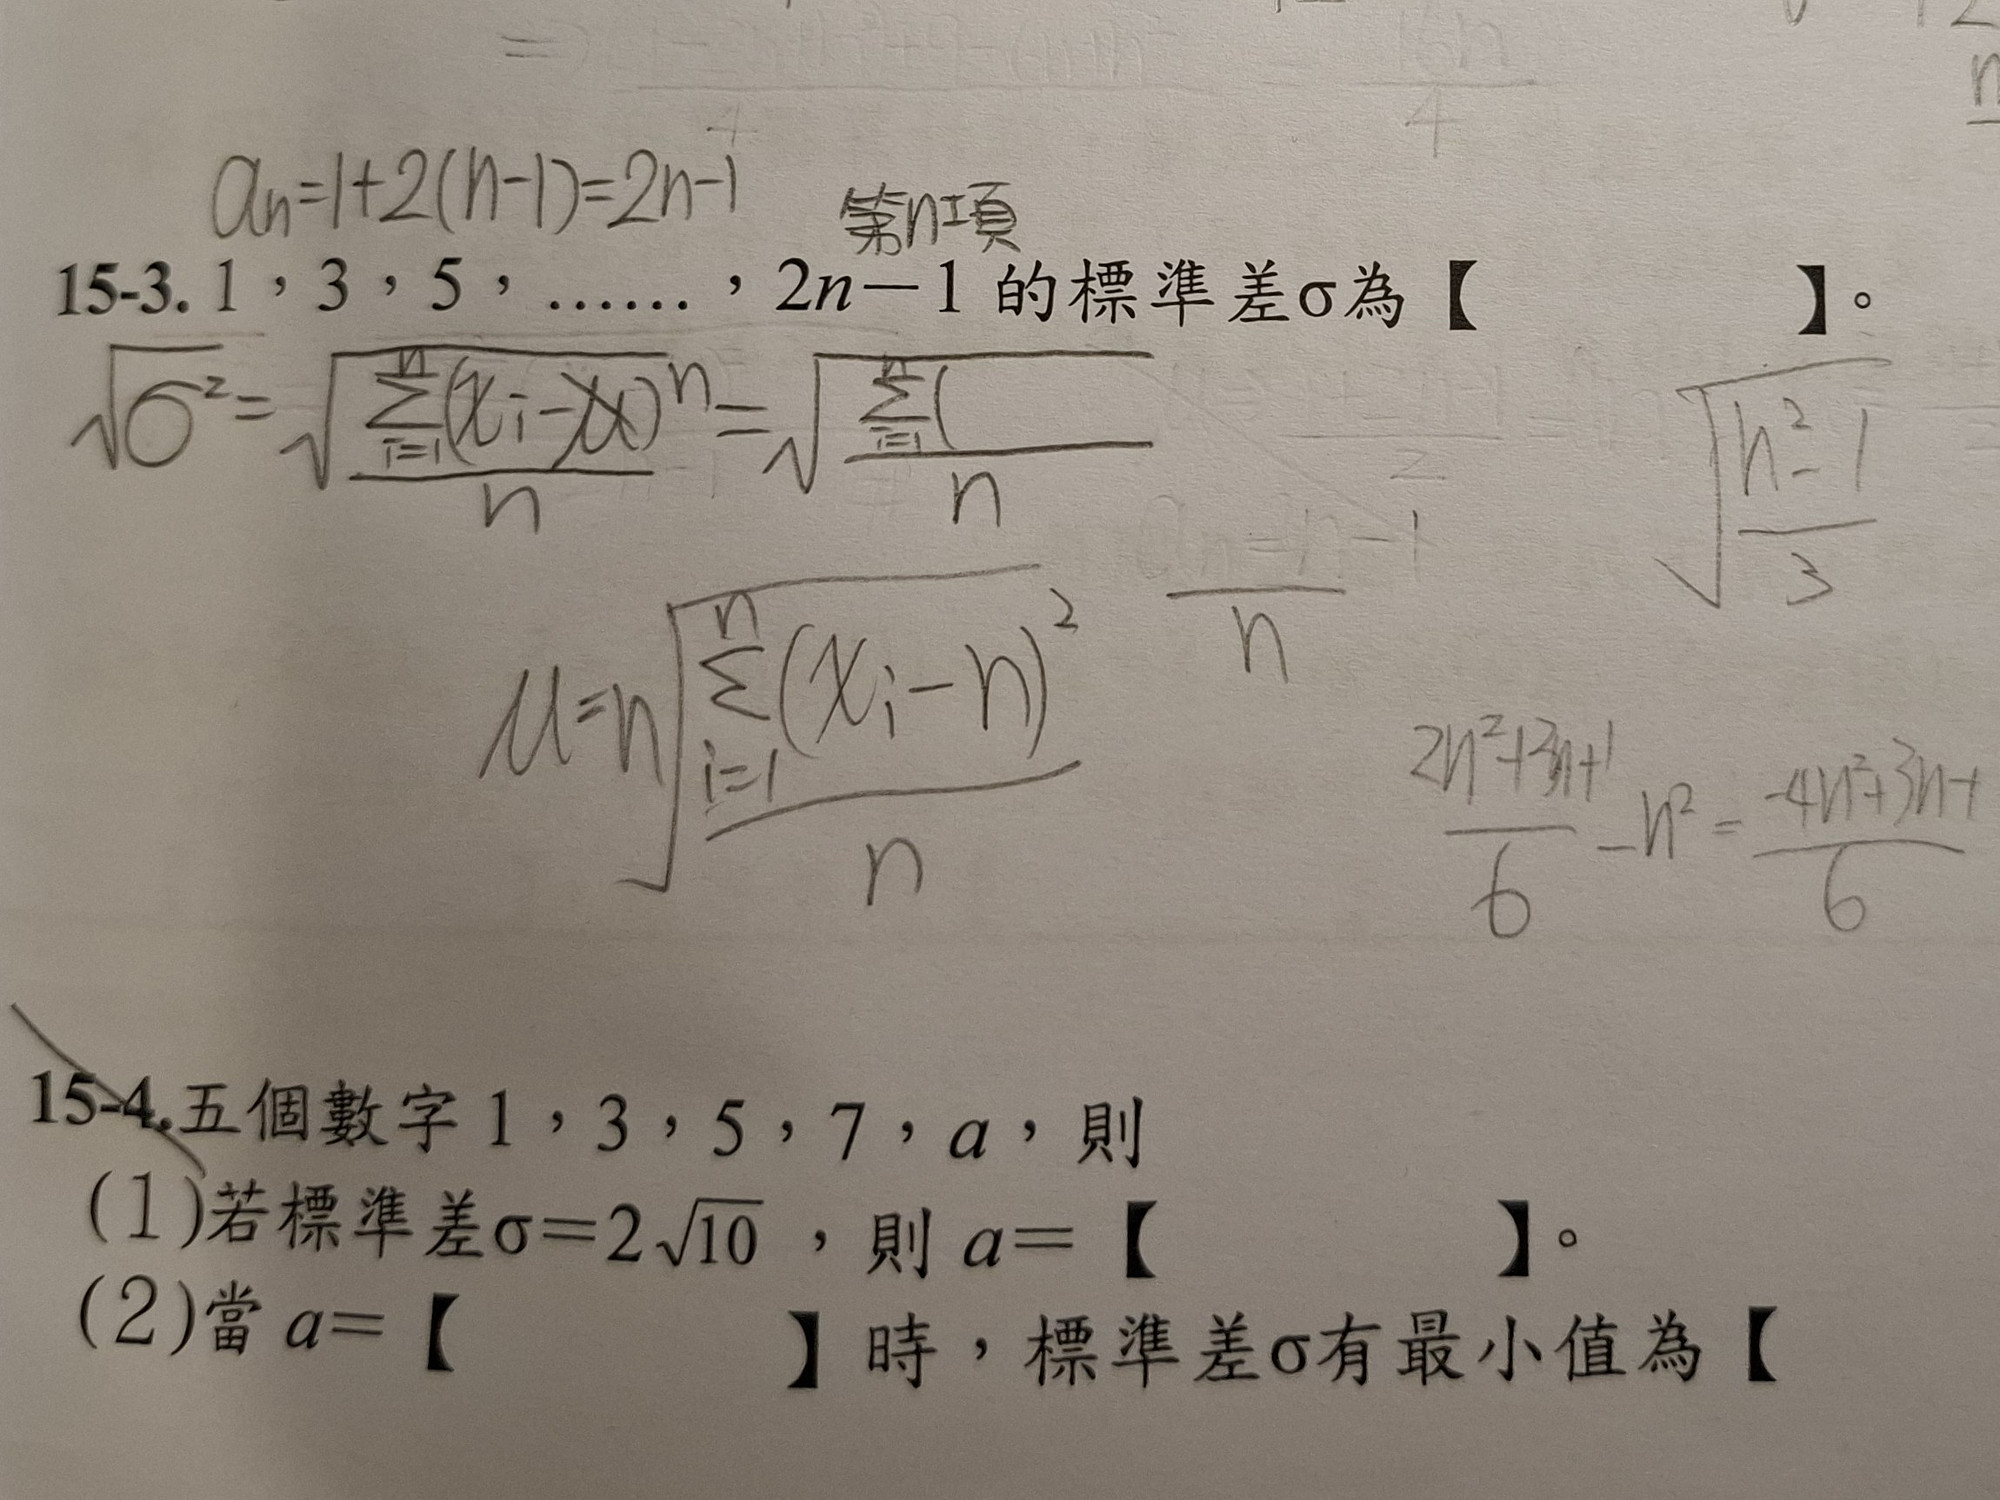 aₙ=1+2(n-1)=2n-1 第n項
15-3. 1，3，5，……，2n－1 的標準差σ為【 】。
√σ²=√(∑ᵢ₌₁ⁿ(xᵢ-μ)ⁿ/n)=√(∑ᵢ₌₁ⁿ(/n)
√((n²-1)/3)
μ=n √(∑ᵢ₌₁ⁿ(xᵢ-n)²/n)
/n
(2n²+3n+1)/6-n²=(-4n²+3n-1)/6
15-4.五個數字 1，3，5，7，a，則
(1)若標準差σ＝2√10，則 a＝【 】。
(2)當 a＝【 】時，標準差σ有最小值為【